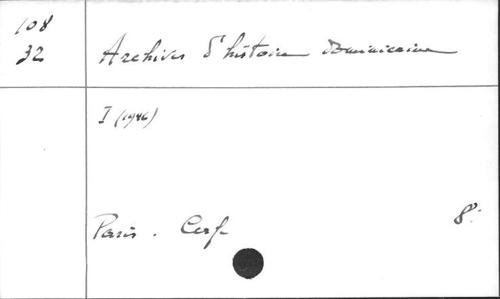 108
32
Archives d'histoire Dominicaine
I (1946)
Paris. Cerf
8°